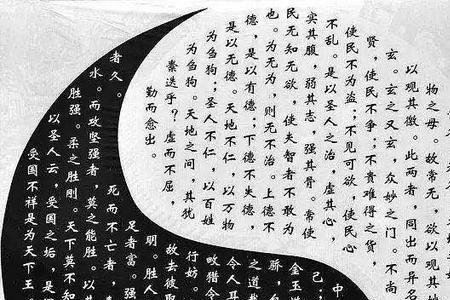 物之母 故常无,欲以观其
以观其徼。此两者,同出而异名
玄。玄之又玄,众妙之门。不尚
贤,使民不争;不贵难得之货,
使民不为盗;不见可欲,使民心
不乱。是以圣人之治,虚其心,
实其腹,弱其志,强其骨。常使
民无知无欲,使夫智者不敢为
也。为无为,则无不治。上德不
德,是以有德;下德不失德,
是以无德。天地不仁,以万物
为刍狗;圣人不仁,以百姓
为刍狗。天地之间,其犹
橐迭乎?虚而不屈,
动而愈出。
中
己;
金玉
之道
骄,
令人耳
畋猎令
行妨
故去彼取
明。胜人
足者富。强
者久。 死而不亡者,
水。而攻坚强者,莫之能胜。以其
胜强。柔之胜刚。天下莫不知
以圣人云,受国之垢,是
受国不祥是为天下王